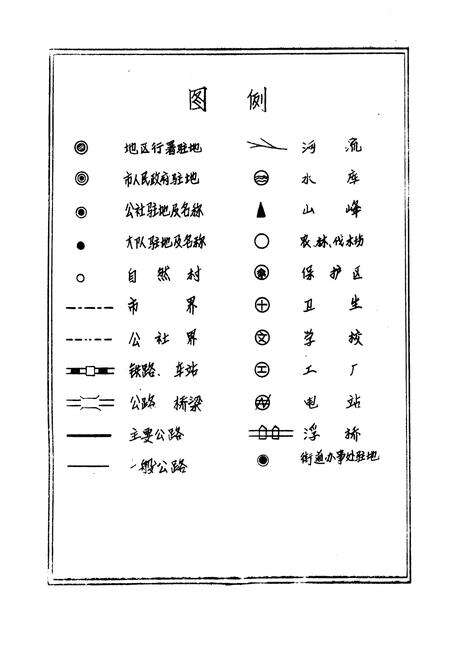 图 例
地区行署驻地
市人民政府驻地
公社驻地及名称
大队驻地及名称
自然村
市界
公社界
铁路、车站
公路 桥梁
主要公路
一般公路
河流
水库
山峰
农、林、伐木场
保护区
卫生
文 学校
工 工厂
电站
浮桥
街道办事处驻地